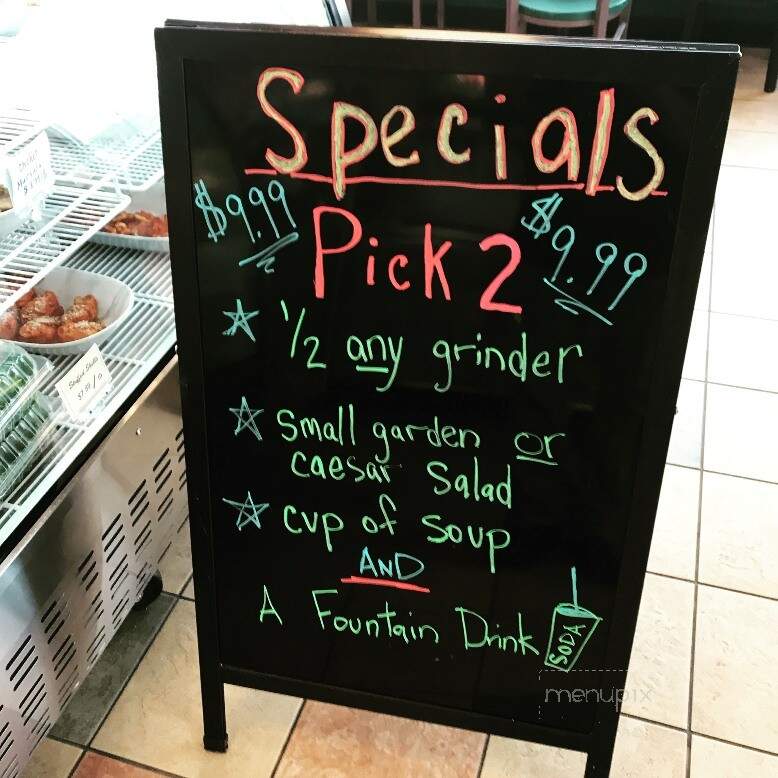 Specials
$9.99 Pick 2 $9.99
1/2 any grinder
small garden or
caesar Salad
cup of soup
AND
A Fountain Drink
SODA
menupix